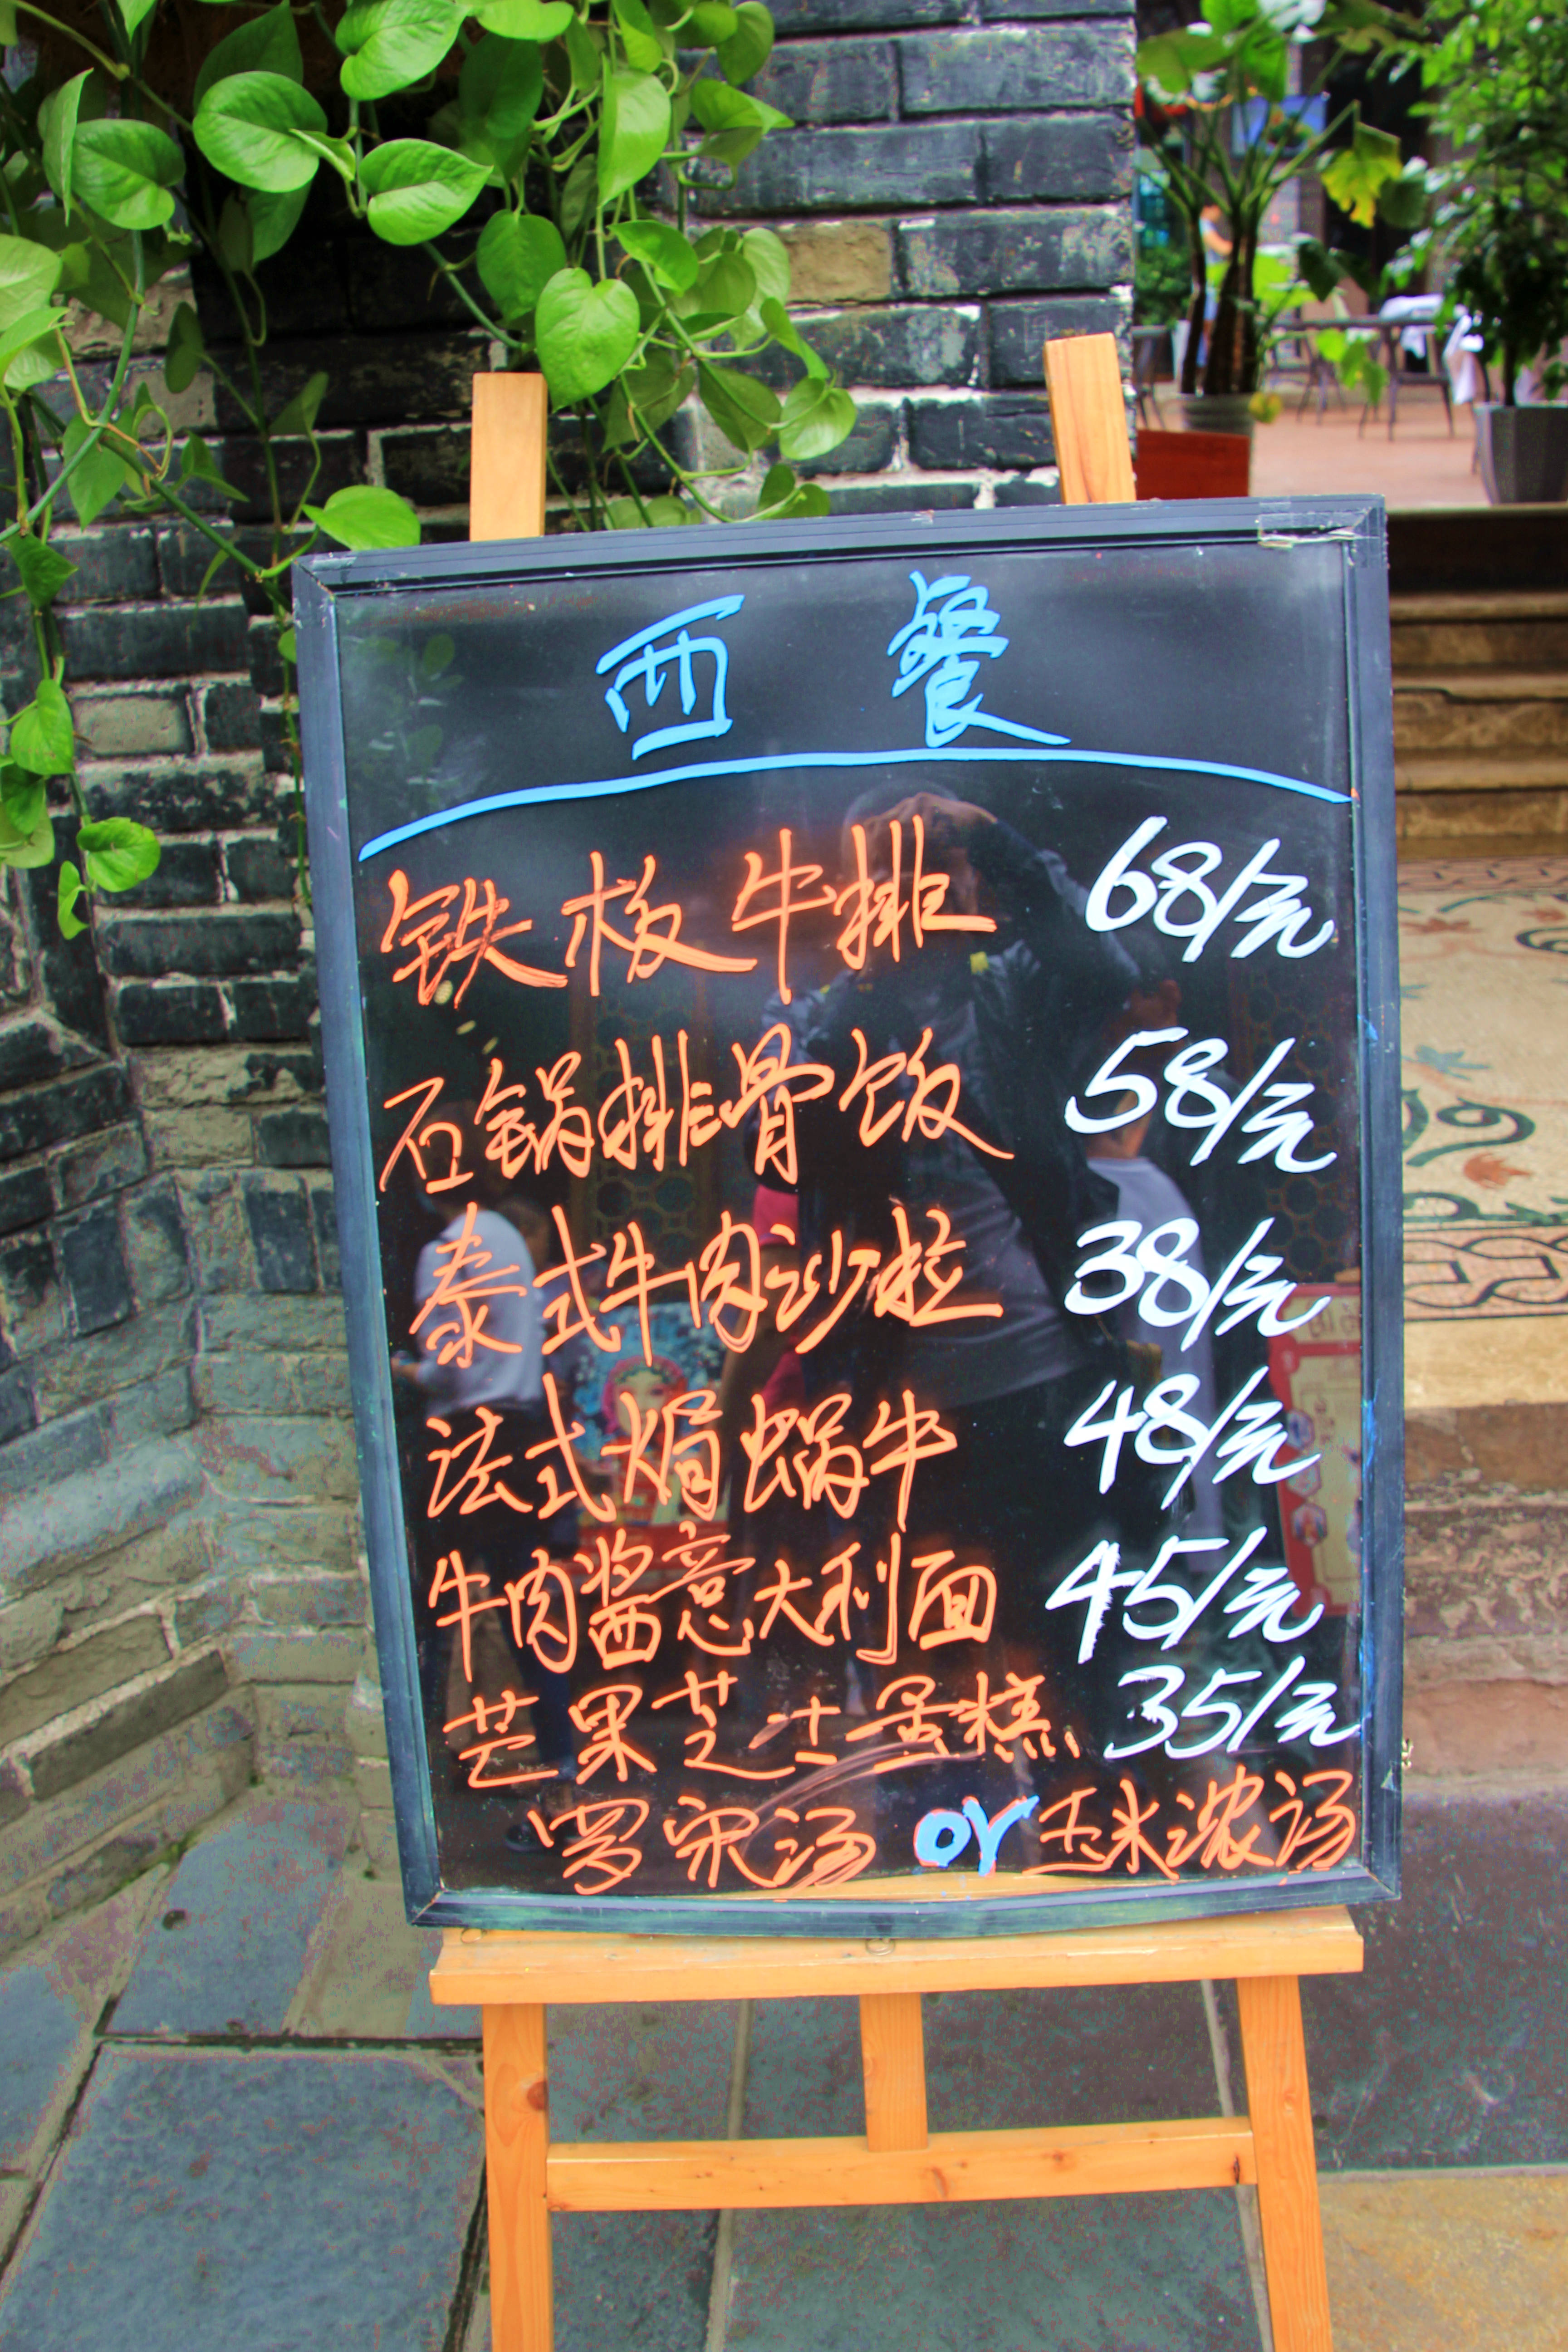 西餐
铁板牛排 68/元
石锅排骨饭 58/元
泰式牛肉沙拉 38/元
法式焗蜗牛 48/元
牛肉酱意大利面 45/元
芒果芝士蛋糕 35/元
罗宋汤 or 玉米浓汤